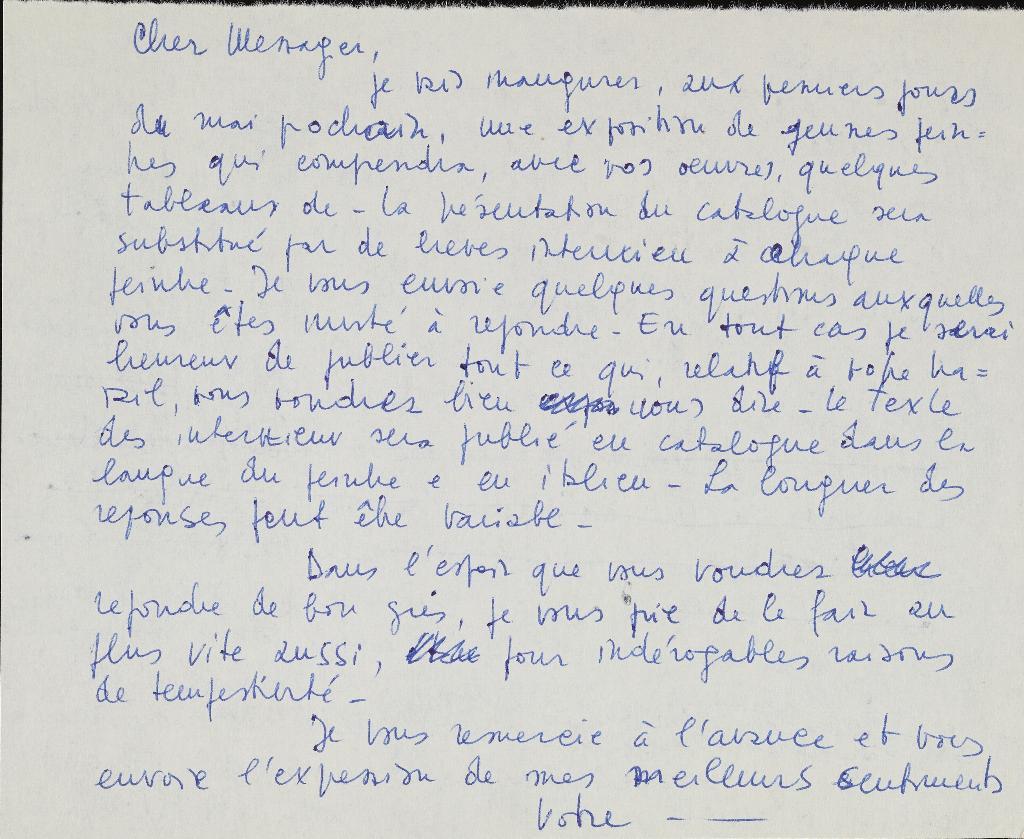 Cher Messager,
je vais inaugurer, aux premiers jours
du mai prochain, une exposition de jeunes pein=
tres qui comprendra, avec vos oeuvres, quelques
tableaux de - La présentation du catalogue sera
substitué par de breves interview à chaque
peintre - Je vous envoie quelques questions auxquelles
vous êtes invité à repondre - En tout cas je serai
heureux de publier tout ce qui, relatif à votre tra=
vail, vous voudrez bien nous dire - Le texte
des interview sera publié en catalogue dans la
langue du peintre e en italien - La longuer des
reponses peut être variable -
Dans l'espoir que vous voudrez
repondre de bon grés, je vous prie de le fair au
plus vite aussi, pour indérogables raisons
de tempestivité -
Je vous remercie à l'avance et vous
envoie l'expression de mes meilleurs sentiments
Votre - —